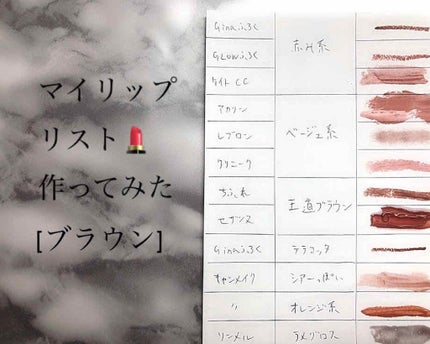 マイリップ
リスト💄
作ってみた
[ブラウン]
Ginaふろく
GLOWふろく
赤み系
ケイト CC
アカリン
レブロン
ベージュ系
クリニーク
ちふれ
王道ブラウン
セザンヌ
Ginaふろく
テラコッタ
キャンメイク
シアーっぽい
〃
オレンジ系
リンメル
ラメグロス